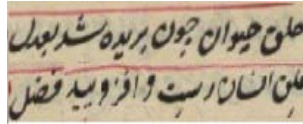 حلق حیوان چون بریده شد بعدل
حلق انسان رست و افزویید فضل